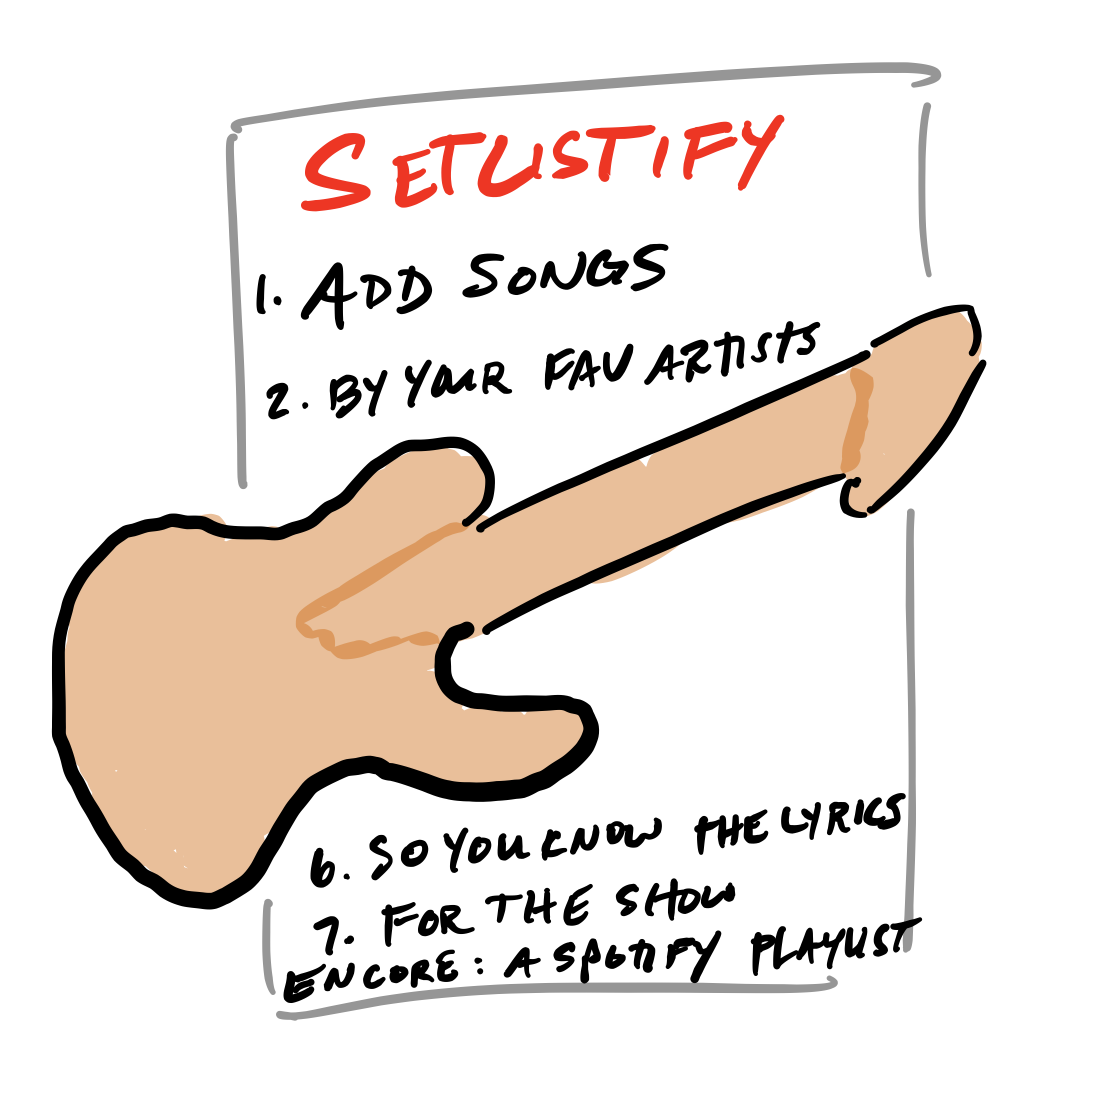 SETLISTIFY
1. ADD SONGS
2. BY YOUR FAV ARTISTS
6. SO YOU KNOW THE LYRICS
7. FOR THE SHOW
ENCORE: A SPOTIFY PLAYLIST